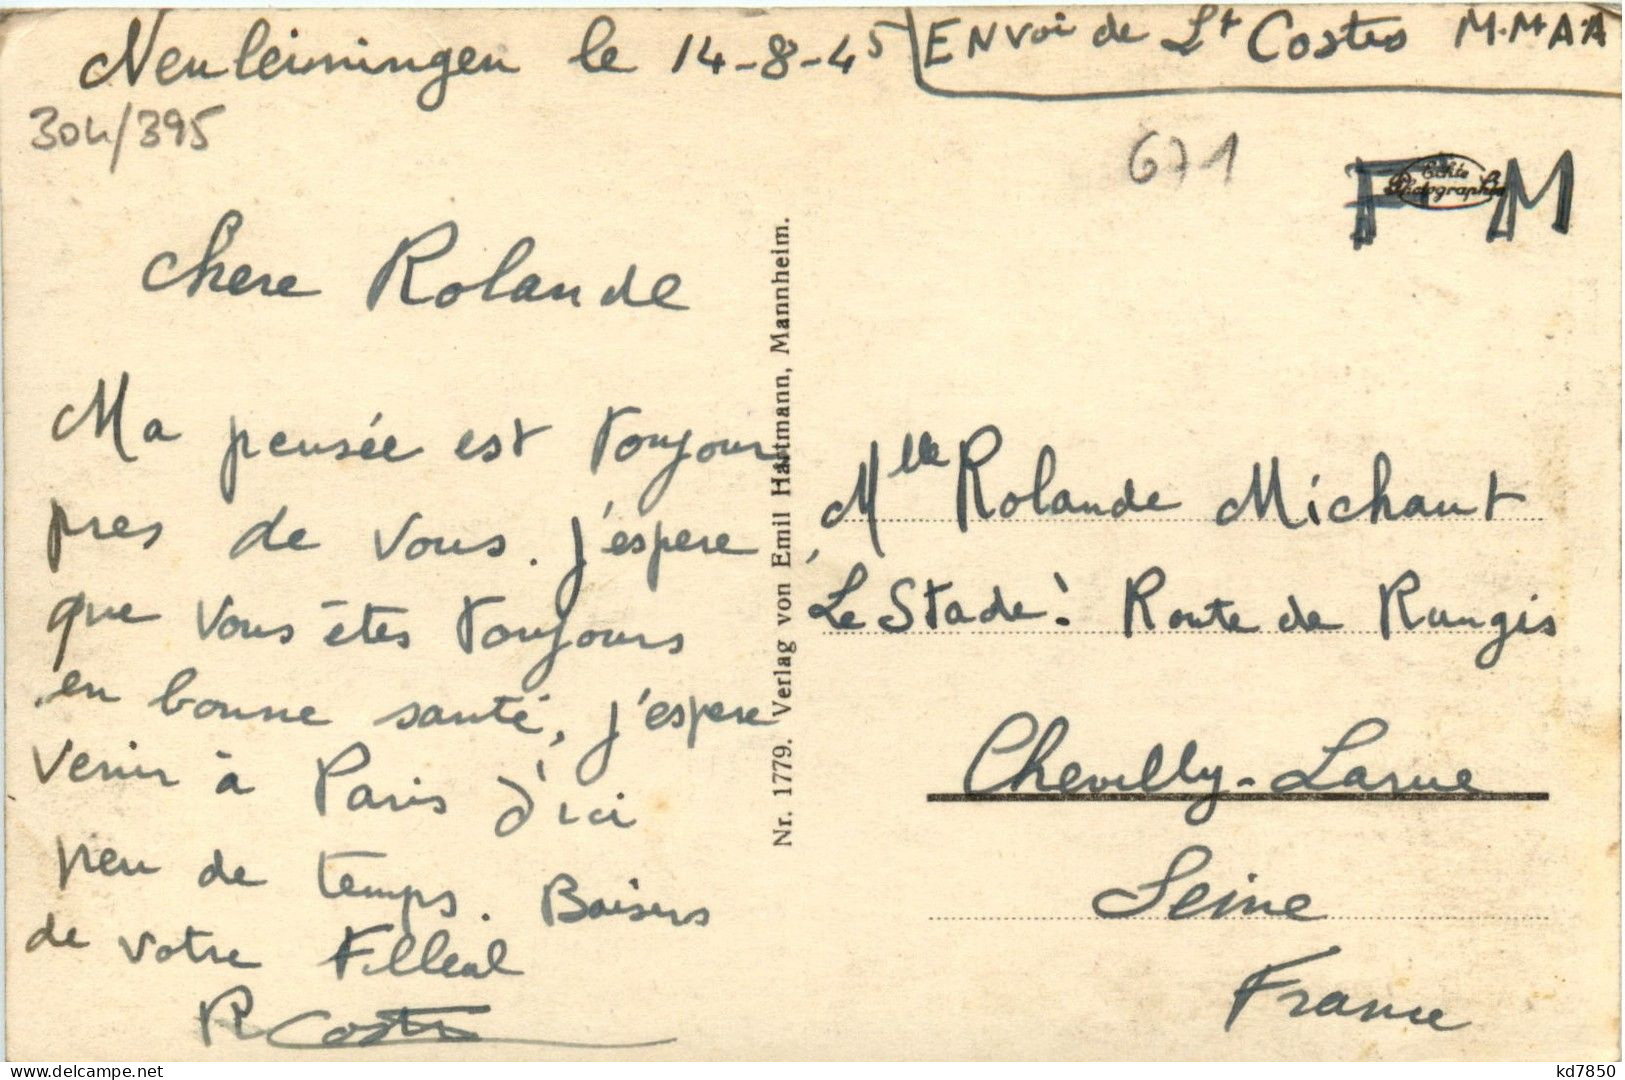 Neuleiningen le 14-8-45
Envoi de Lt Costes M.MAA
304/395
671
F M
Echte Photographie
chere Rolande
Ma pensée est toujours
pres de vous. j'espere
que vous êtes toujours
en bonne santé, j'espere
venir à Paris d'ici
peu de temps. Baisers
de votre Filleul
R Costes
Nr. 1779. Verlag von Emil Hartmann, Mannheim.
Mlle Rolande Michaut
Le Stade! Route de Rungis
Chevilly-Larue
Seine
France
kd7850